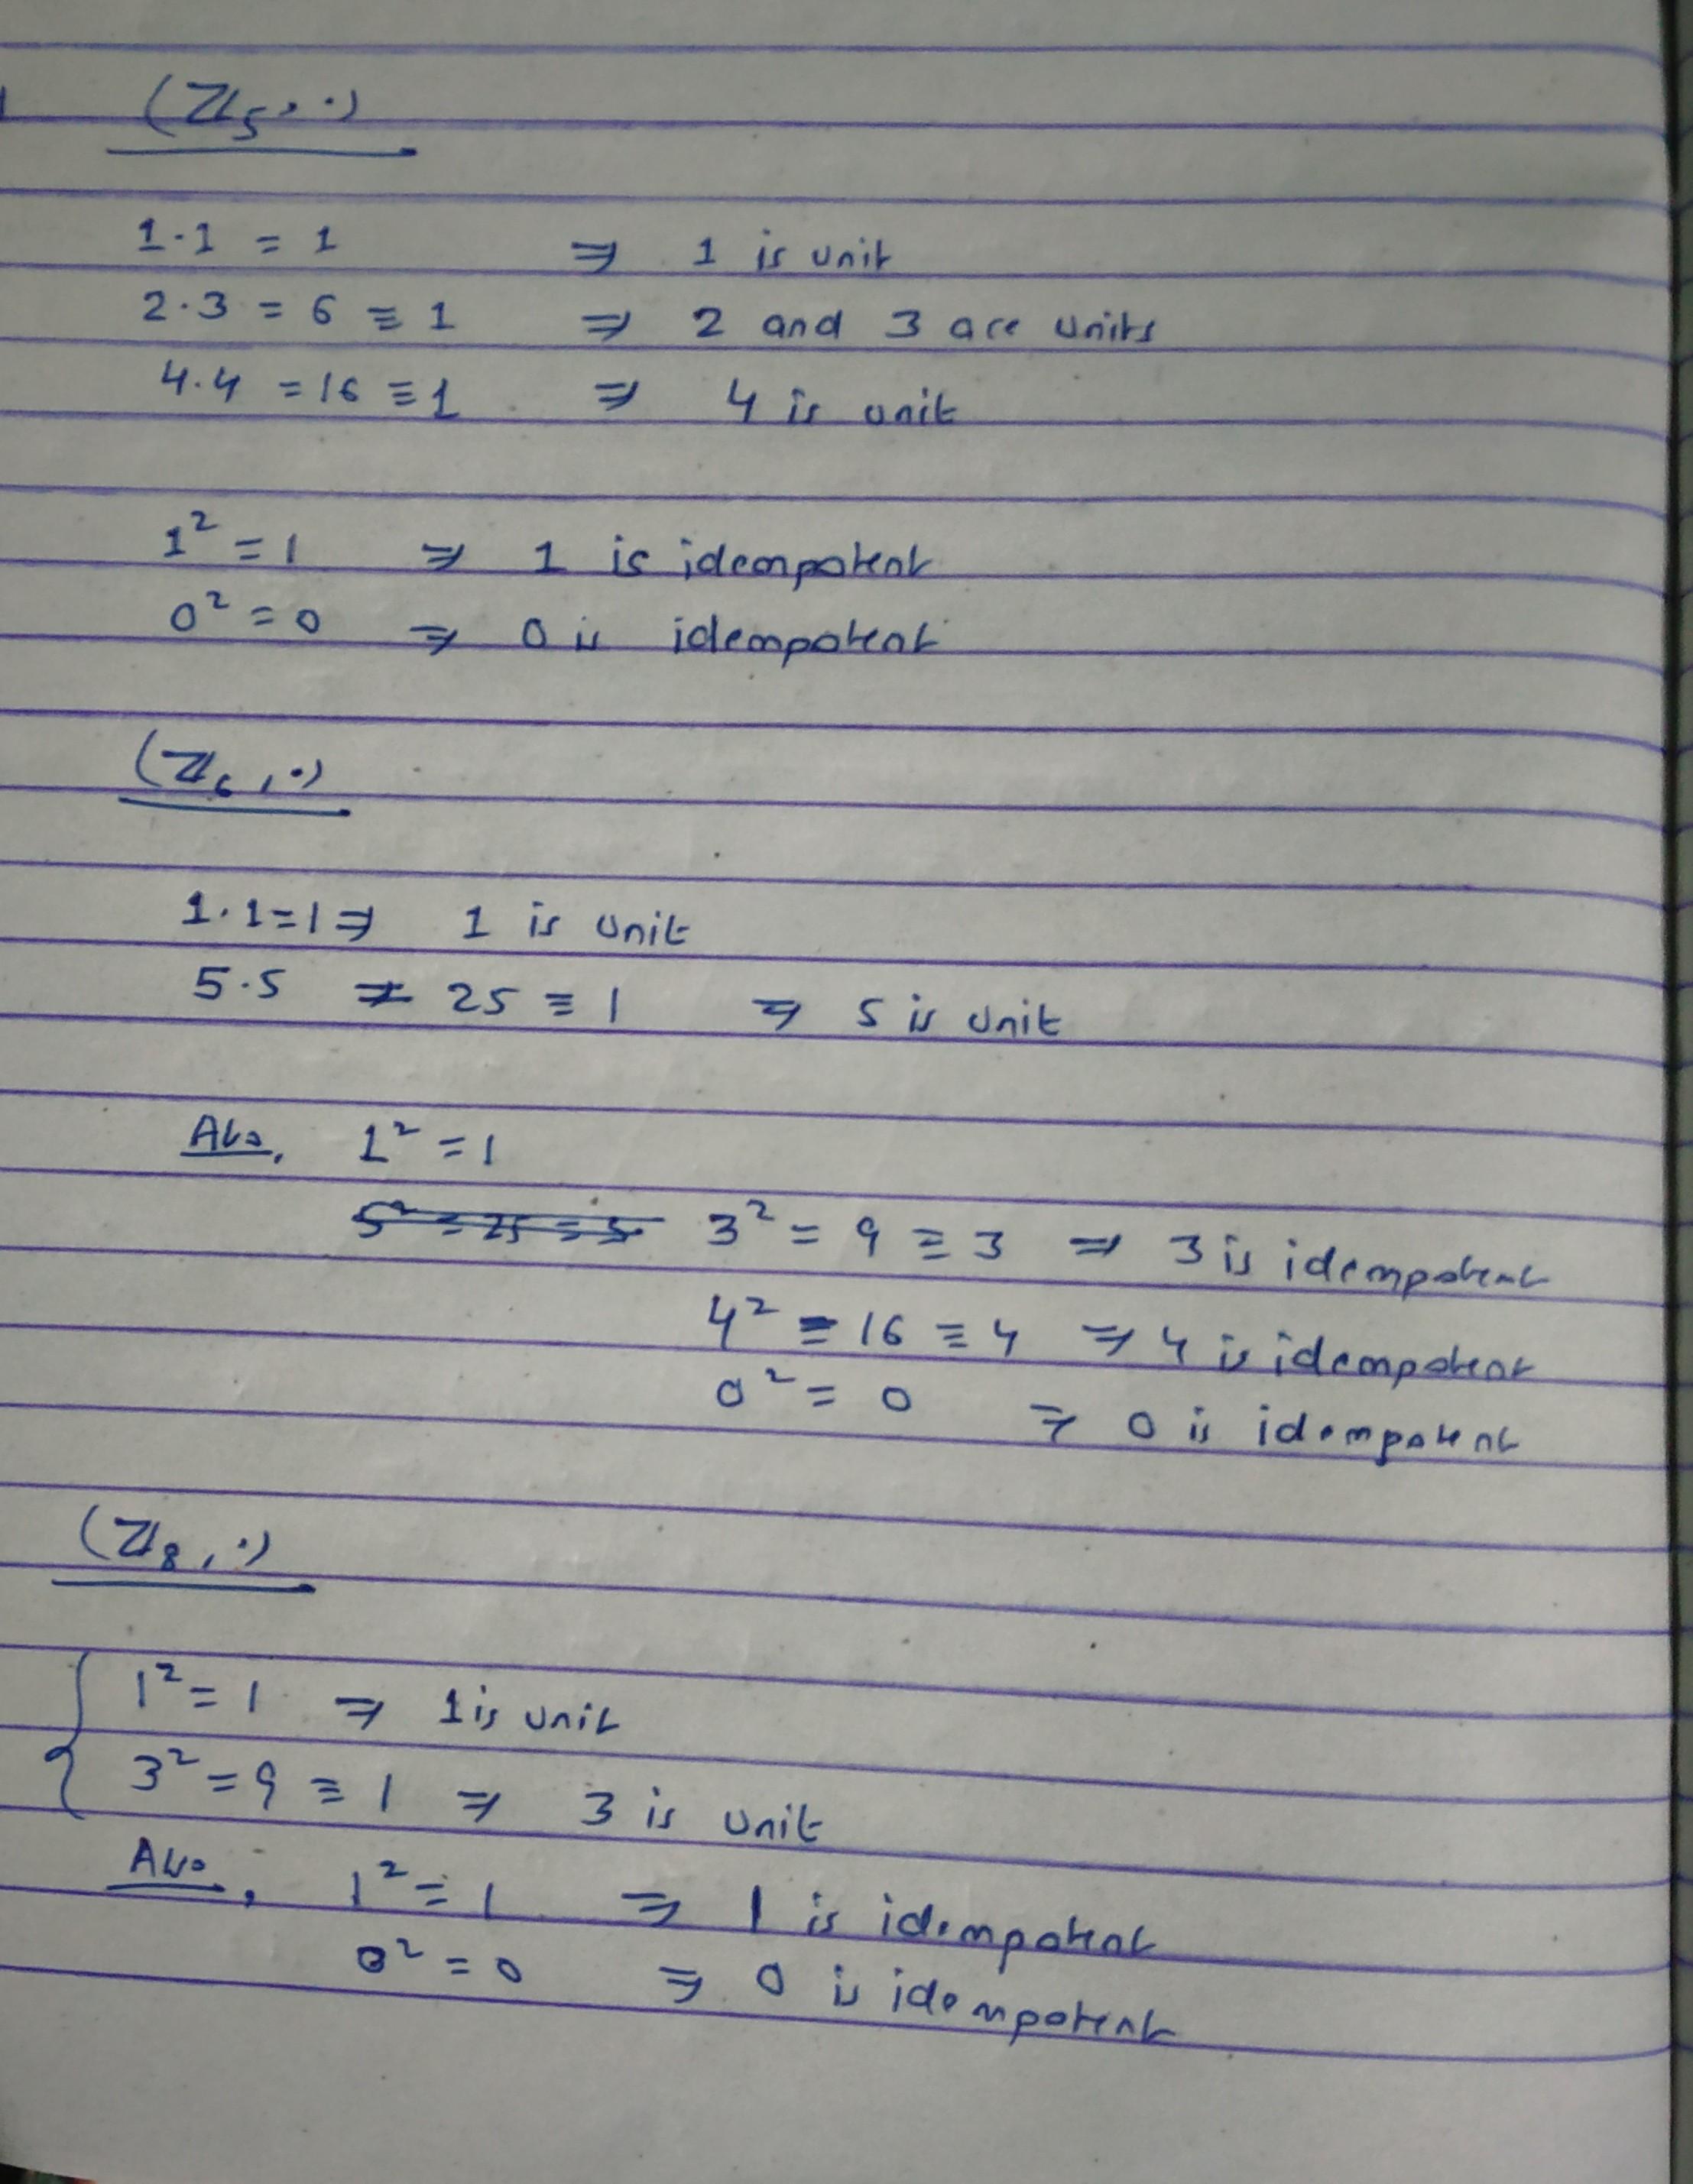 (ℤ₅, ·)
1·1 = 1 ⇒ 1 is unit
2·3 = 6 ≡ 1 ⇒ 2 and 3 are units
4·4 = 16 ≡ 1 ⇒ 4 is unit
1² = 1 ⇒ 1 is idempotent
0² = 0 ⇒ 0 is idempotent
(ℤ₆, ·)
1·1 = 1 ⇒ 1 is unit
5·5 = 25 ≡ 1 ⇒ 5 is unit
Also, 1² = 1
5² = 25 = 5 3² = 9 ≡ 3 ⇒ 3 is idempotent
4² = 16 ≡ 4 ⇒ 4 is idempotent
0² = 0 ⇒ 0 is idempotent
(ℤ₈, ·)
1² = 1 ⇒ 1 is unit
3² = 9 ≡ 1 ⇒ 3 is unit
Also, 1² = 1 ⇒ 1 is idempotent
0² = 0 ⇒ 0 is idempotent